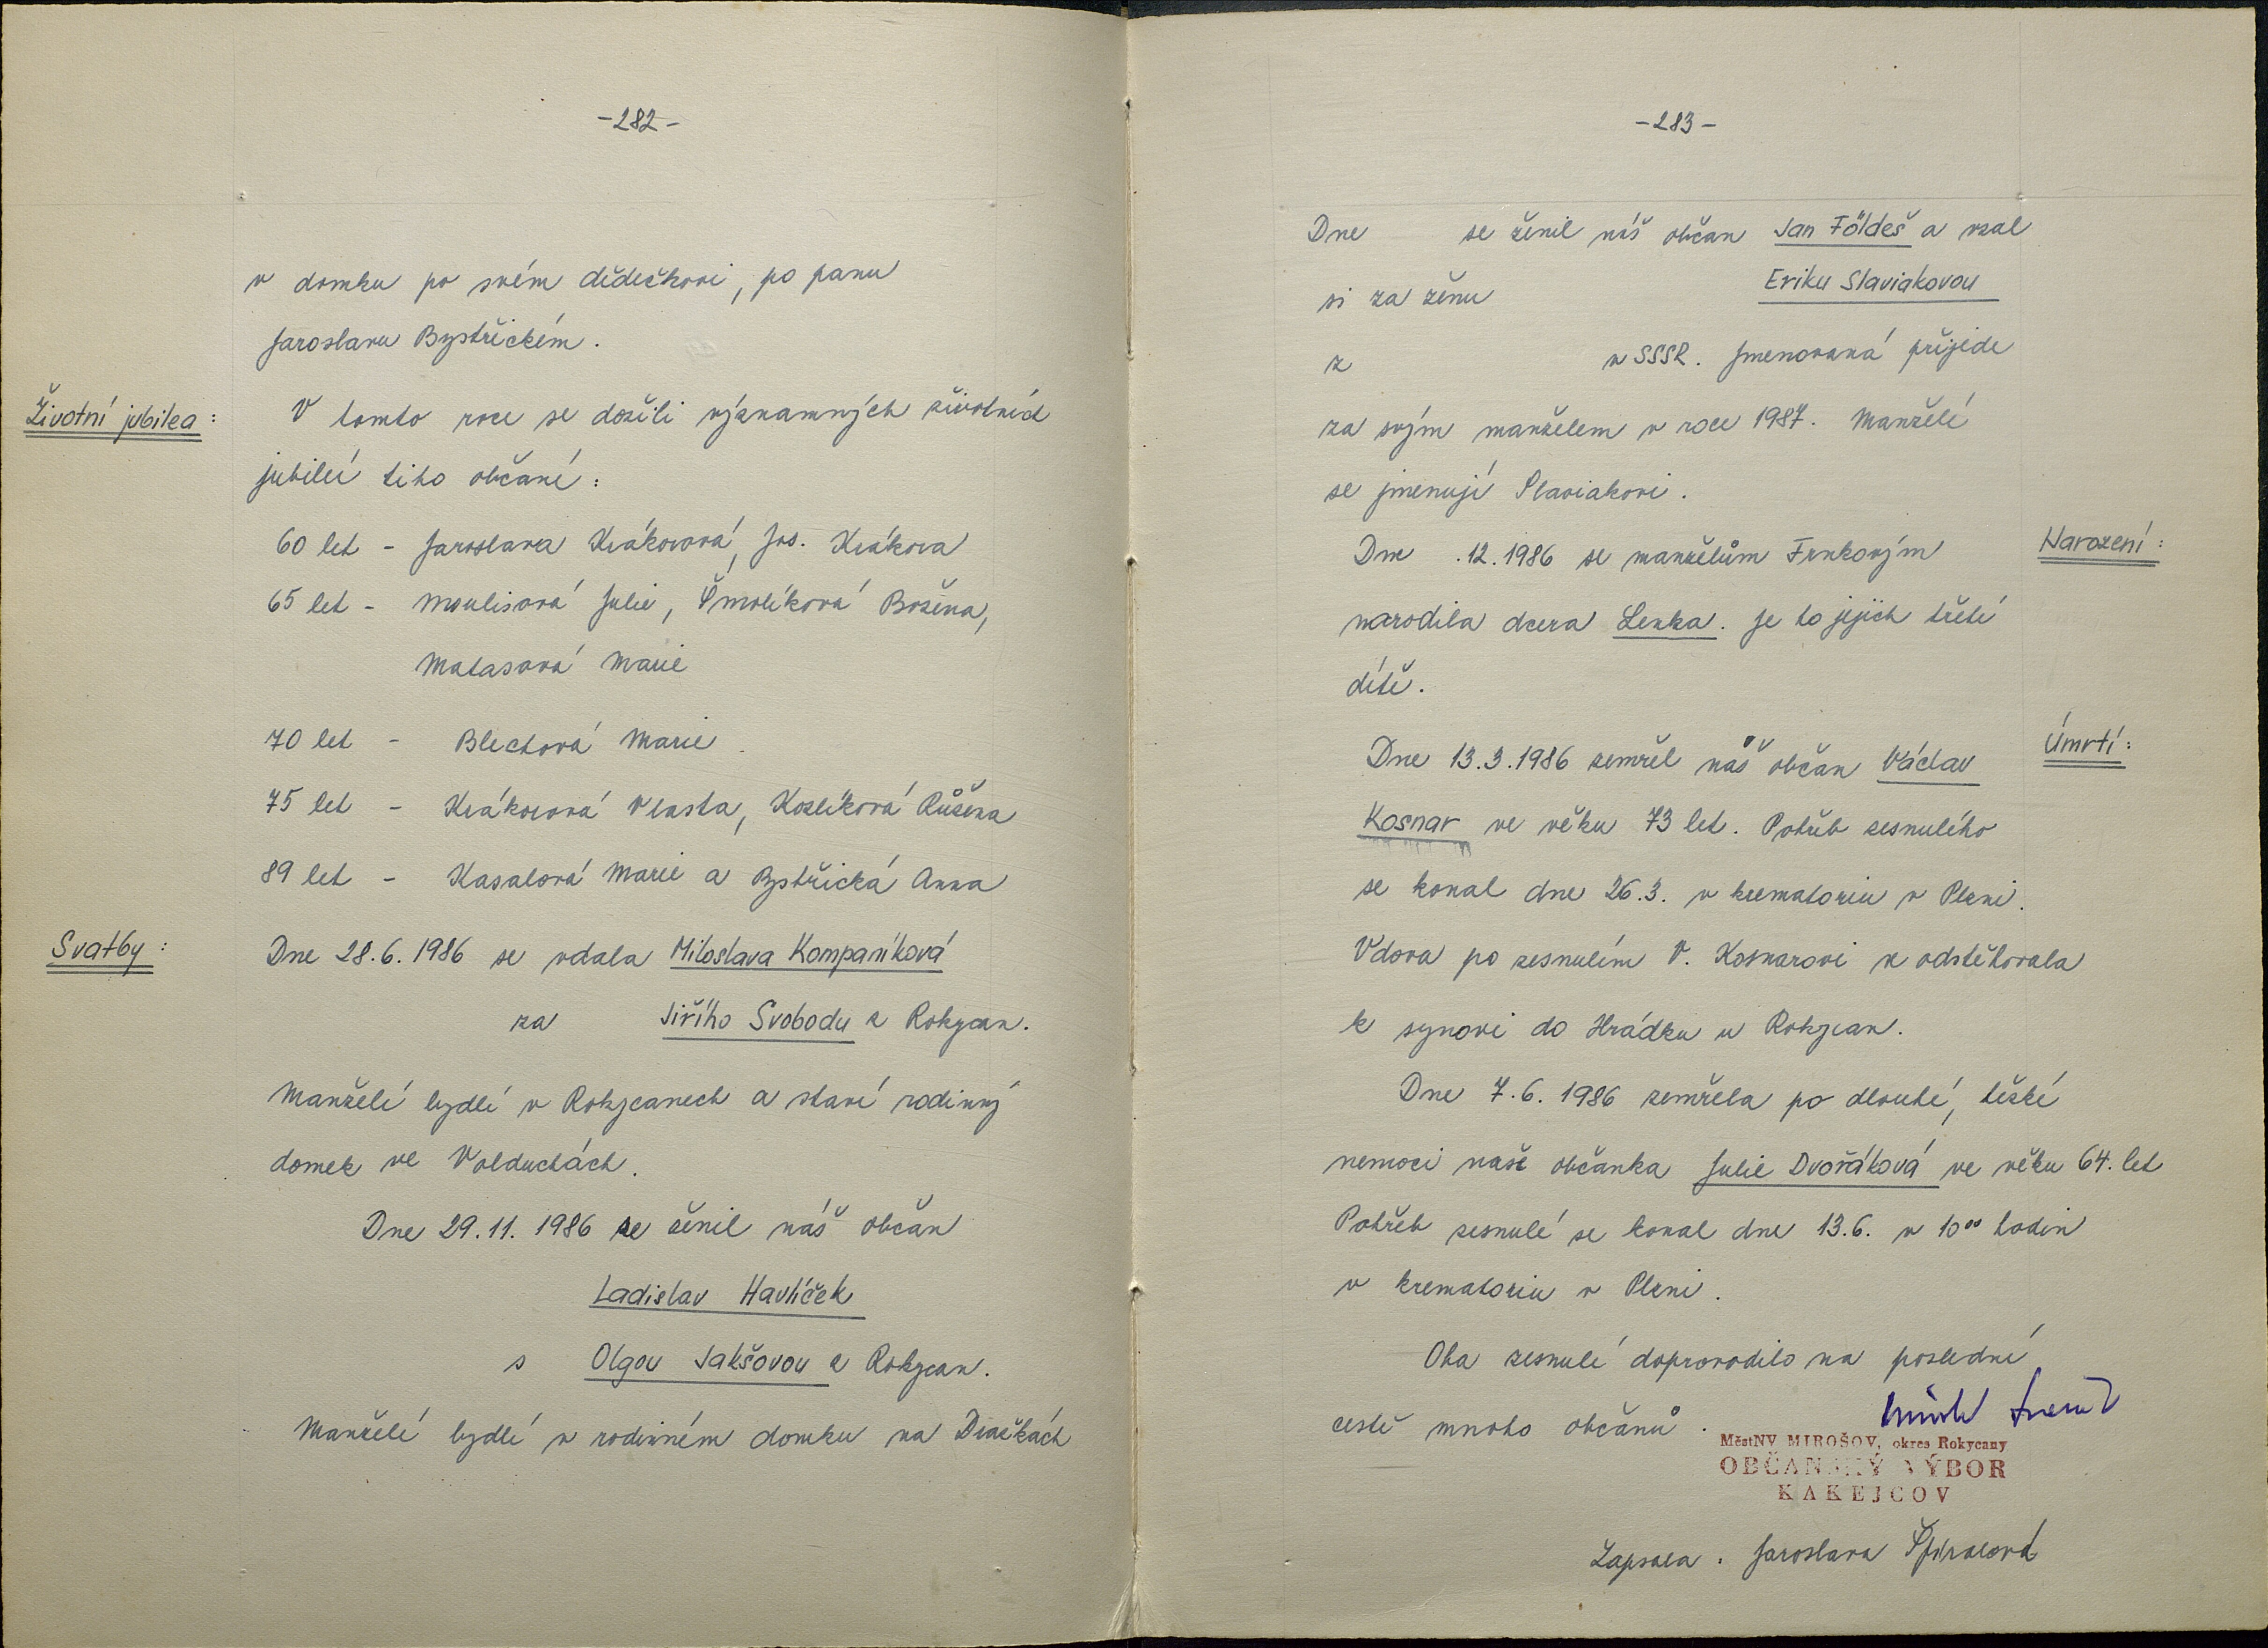 -282-
v domku po svém dědečkovi, po panu
Jaroslavu Bystřickém.
Životní jubilea:
V tomto roce se dožili významných životních
jubileí tito občané:
60 let - Jaroslava Krákorová, Jos. Krákora
65 let - Moulisová Julie, Šmolíková Božena,
Matasová Marie
70 let - Blechová Marie
75 let - Krákorová Vlasta, Kozlíková Růžena
89 let - Kasalová Marie a Bystřická Anna
Svatby:
Dne 28.6.1986 se vdala Miloslava Kompaníková
za Jiřího Svobodu z Rokycan.
Manželé bydlí v Rokycanech a staví rodinný
domek ve Volduchách.
Dne 29.11.1986 se ženil náš občan
Ladislav Havlíček
s Olgou Jakšovou z Rokycan.
Manželé bydlí v rodinném domku na Dračkách
-283-
Dne se ženil náš občan Jan Földeš a vzal
si za ženu Eriku Slaviakovou
z v SSSR. Jmenovaná přijede
za svým manželem v roce 1987. Manželé
se jmenují Slaviakovi.
Narození:
Dne .12.1986 se manželům Frnkovým
narodila dcera Lenka. Je to jejich třetí
dítě.
Úmrtí:
Dne 13.3.1986 zemřel náš občan Václav
Kosnar ve věku 73 let. Pohřeb zesnulého
se konal dne 26.3. v krematoriu v Plzni.
Vdova po zesnulém V. Kosnarovi se odstěhovala
k synovi do Hrádku u Rokycan.
Dne 7.6. 1986 zemřela po dlouhé, těžké
nemoci naše občanka Julie Dvořáková ve věku 64. let
Pohřeb zesnulé se konal dne 13.6. v 10⁰⁰ hodin
v krematoriu v Plzni.
Oba zesnulé doprovodilo na poslední
cestě mnoho občanů.
MěstNV MIROŠOV, okres Rokycany
OBČANSKÝ VÝBOR
KAKEJCOV
Zapsala: Jaroslava